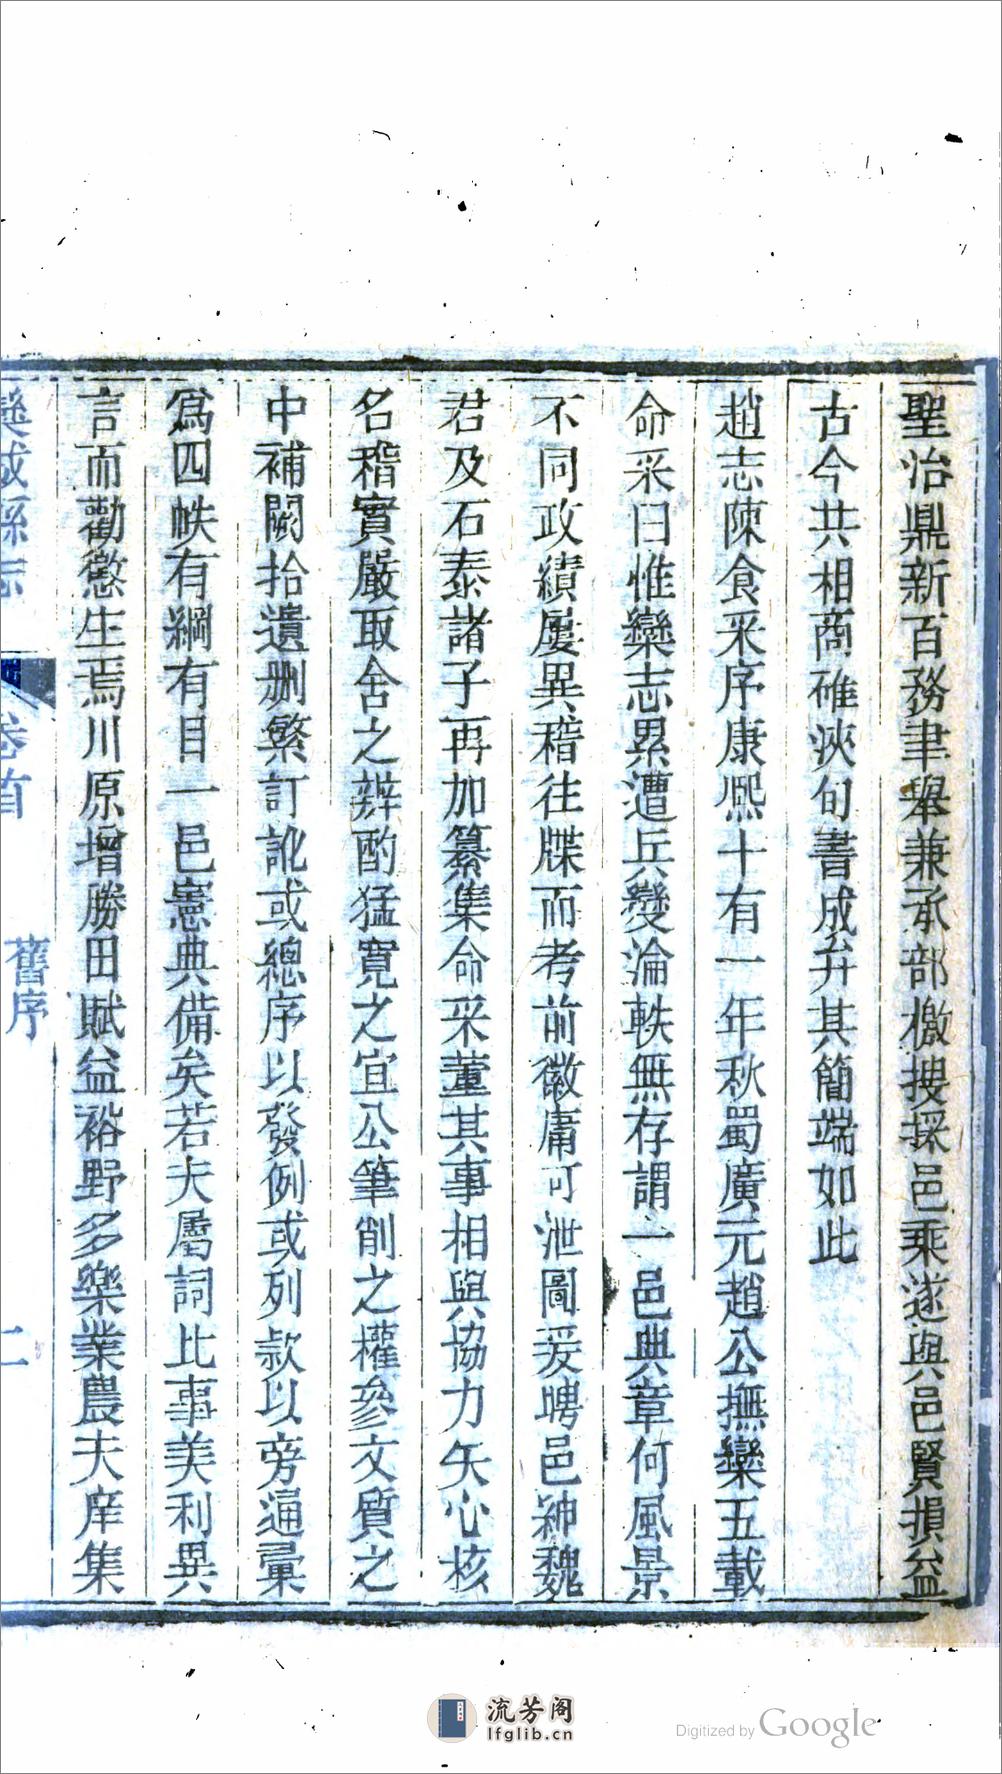 聖治鼎新百務聿舉兼承部檄搜採邑乘遂與邑賢損益
古今共相商碓浹旬書成弁其簡端如此
趙志陳食采序康熙十有一年秋蜀廣元趙公撫欒五載
命采曰惟欒志累遭兵燹淪軼無存謂一邑典章何風景
不同政績屢異稽往牒而考前徽庸可泄圖爰聘邑紳魏
君及石泰諸子再加纂集命采董其事相與協力矢心核
名稽實嚴取舍之辨酌猛寛之宜公筆削之權參文質之
中補闕拾遺刪繁訂訛或總序以發例或列款以旁通彙
爲四帙有綱有目一邑憲典備矣若夫屬詞比事美利異
言而勸懲生焉川原增勝田賦益裕野多樂業農夫庠集
欒城縣志 卷首 舊序 二
流芳阁
lfglib.cn
Digitized by Google